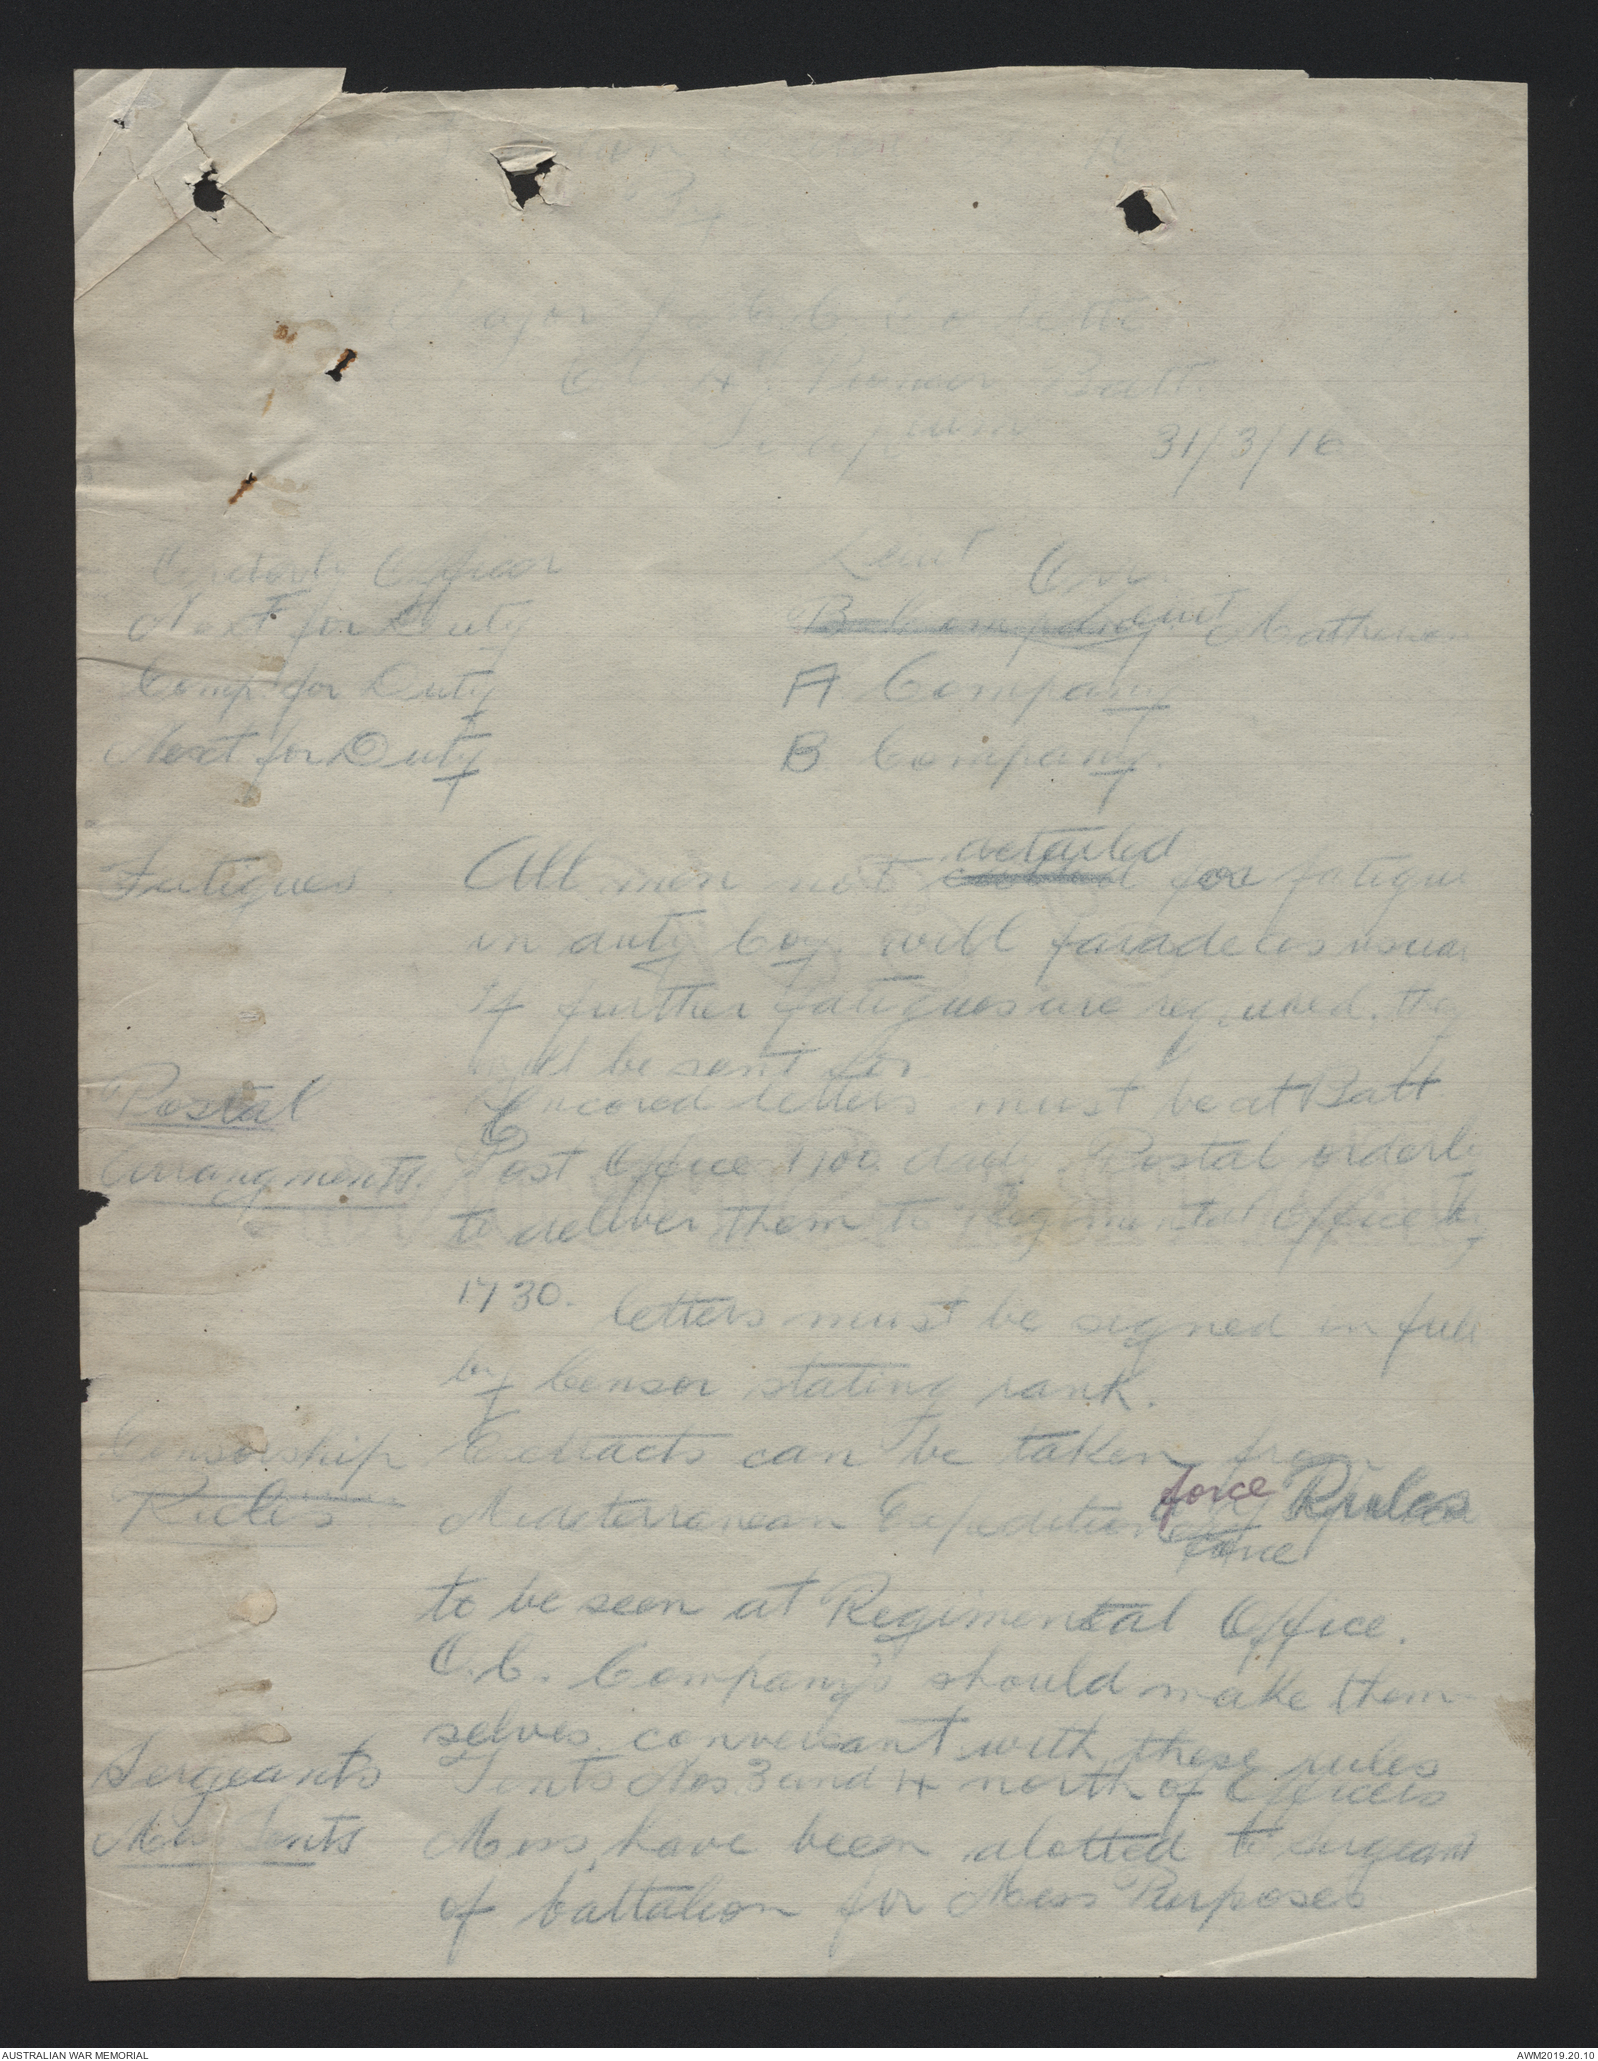 31/3/16
Orderly Officer Lieut Orr
Next for Duty B Company Lieut
Comp for Duty A Company
Next for Duty B Company.
Fatigues All men not detailed for fatigue
in duty Coy. will parade as usual
If further fatigues are required. they
will be sent for
Postal Cencored letters must be at Batt
Arrangments. Post Office 1700 daily Postal orderly
to deliver them to Regimental Office by
1730. letters must be signed in full
by Censor stating rank.
Censorship Extracts can be taken from
Rules Mediterranean Expedition force force Rules
to be seen at Regimental Office.
O.C. Company's should make them
selves conversant with these rules
Sergeants Tents Nos 3 and 4 north of Officers
Mess Tents Mess, have been alotted to sergeant
of battalion for Mess Purposes
AUSTRALIAN WAR MEMORIAL AWM2019.20.10